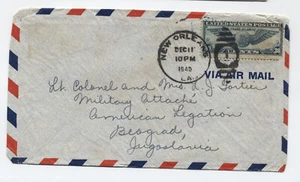 NEW ORLEANS
DEC 11
10 PM
1945
LA.
UNITED STATES POSTAGE
CENTS
VIA AIR MAIL
Lt Colonel and Mrs. L. J. Fortier
Military Attaché
American Legation
Beograd,
Jugoslavia